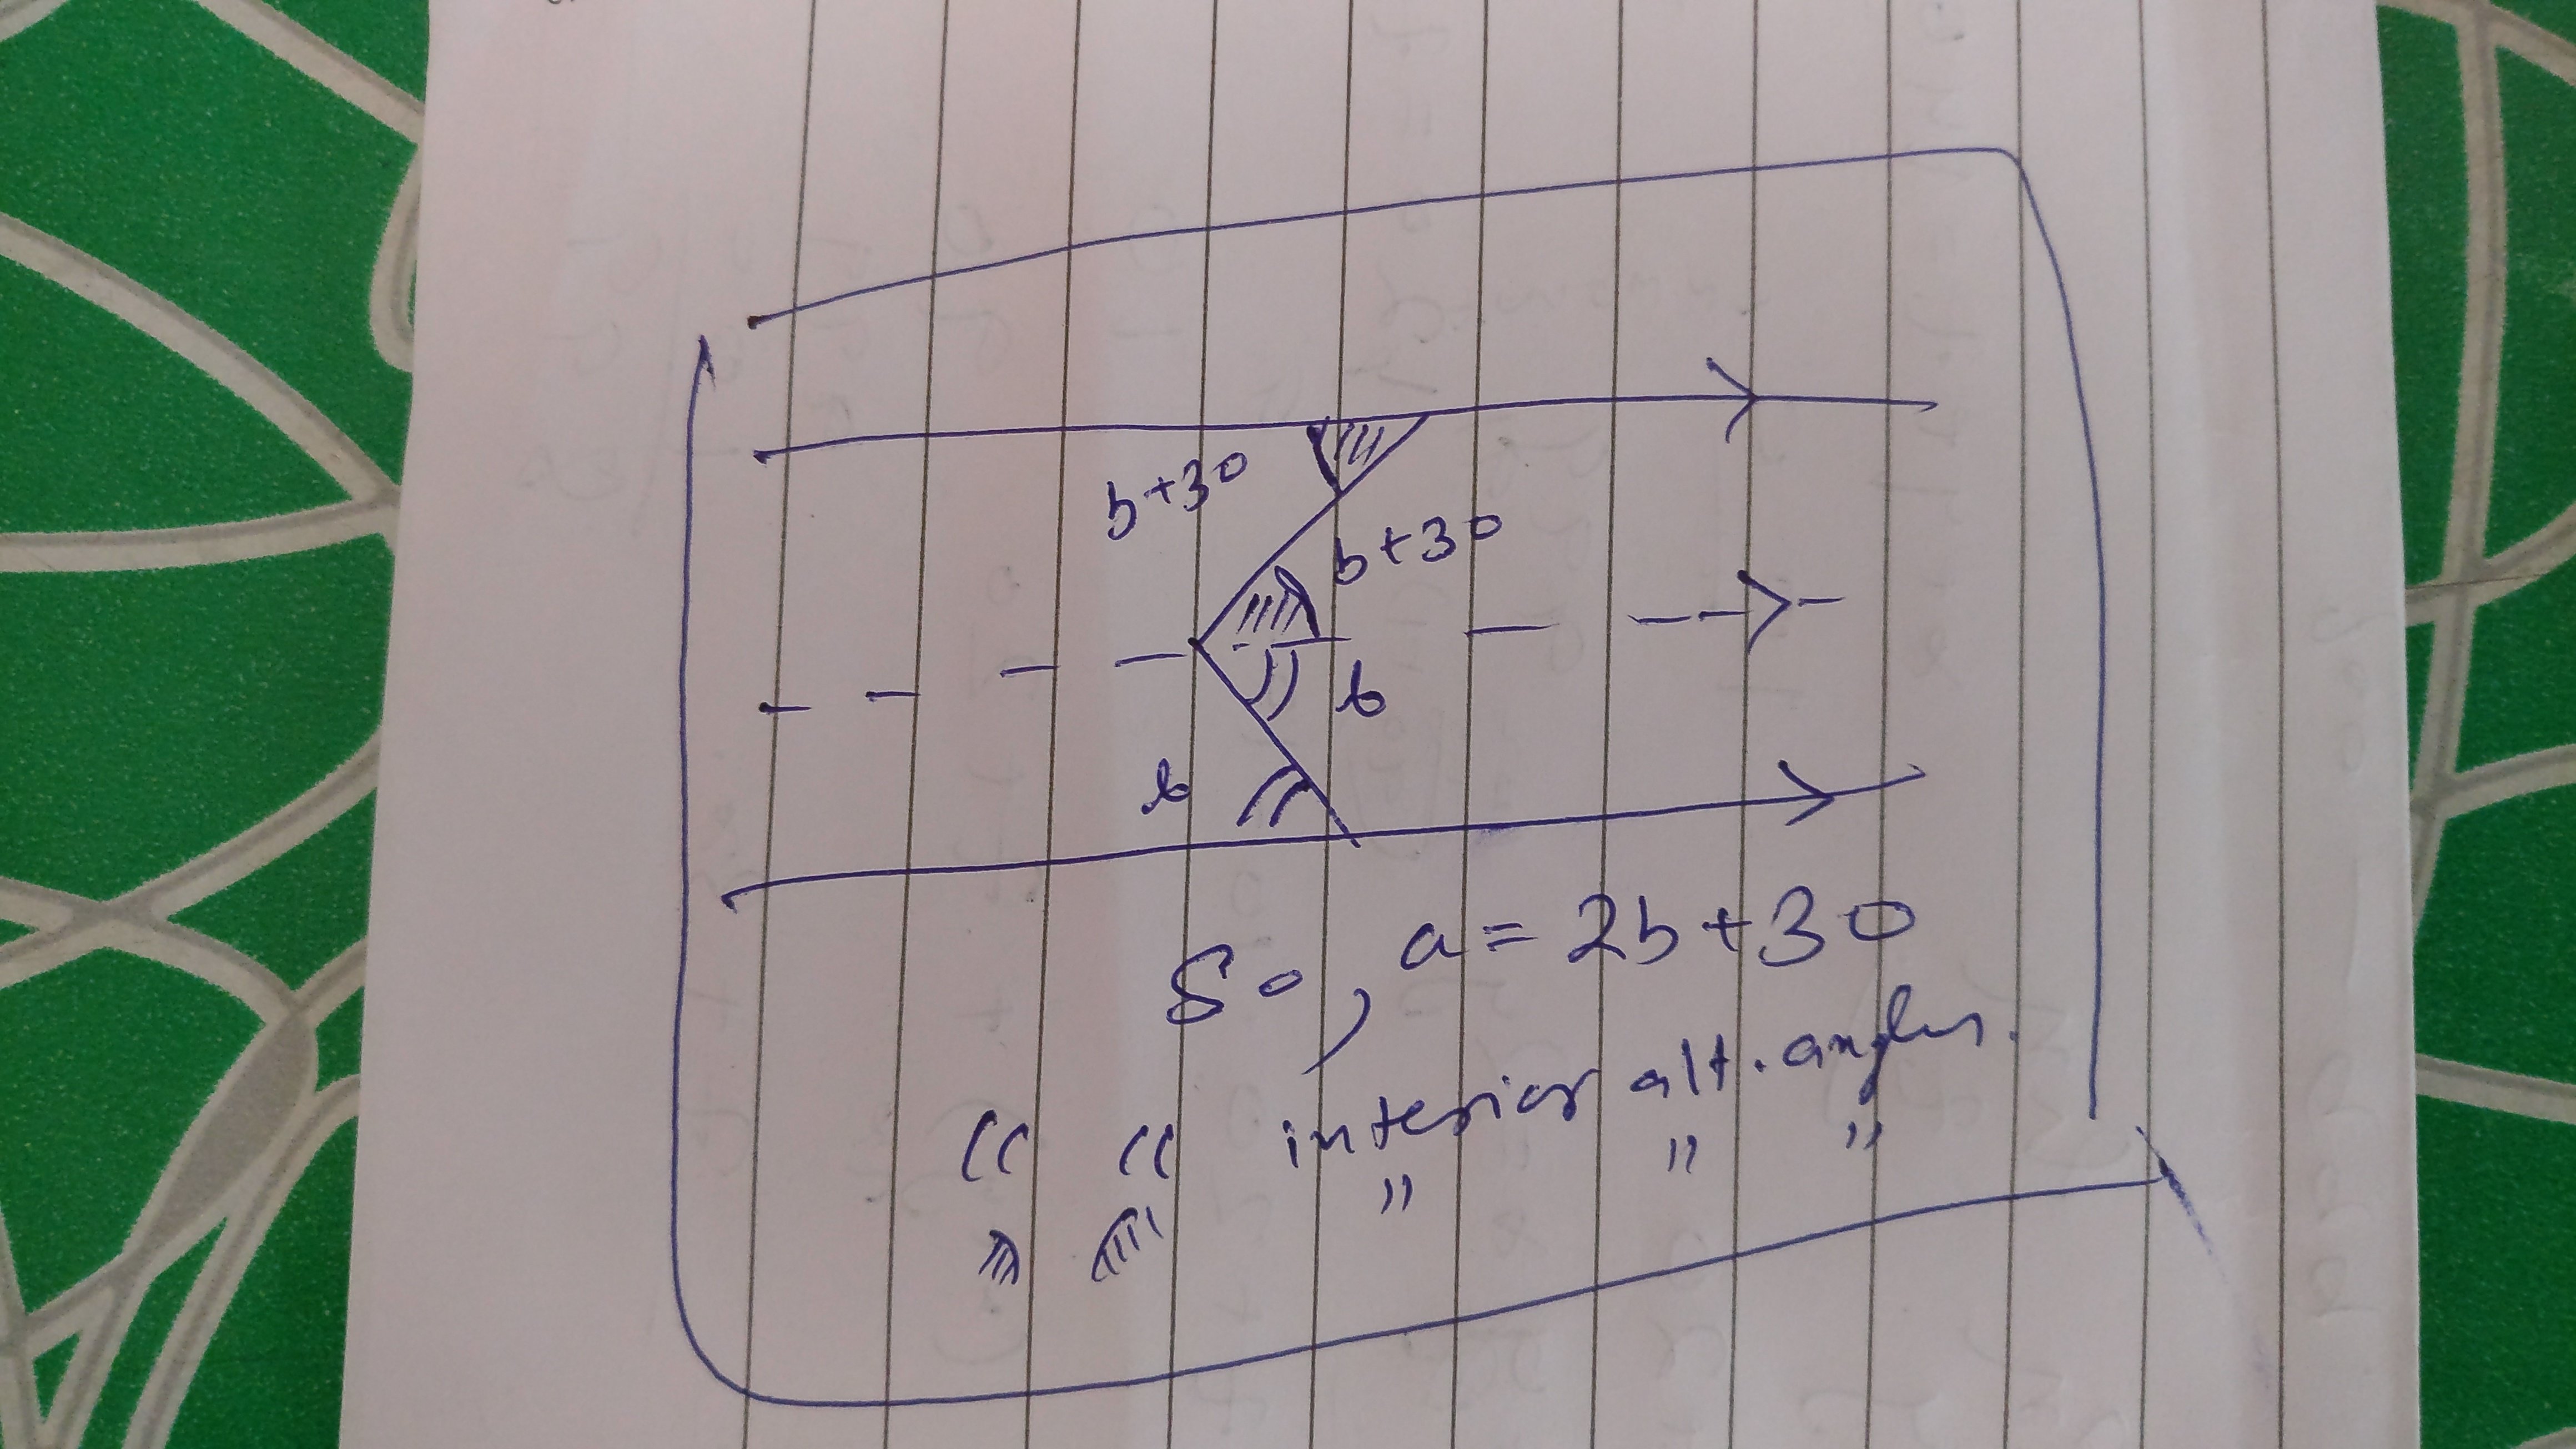 b+30
b+30
b
b
So, a = 2b+30
(( (( interior alt. angles.
" " "